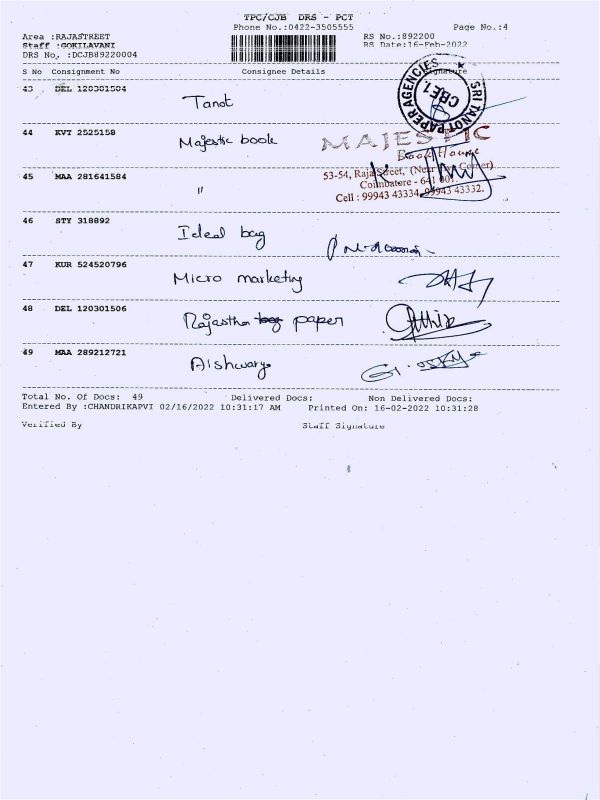 TPC/CJB DRS - PCT
Phone No.:0422-3505555
Page No.:4
Area :RAJASTREET
RS No.:892200
Staff :GOKILAVANI
RS Date:16-Feb-2022
DRS No. :DCJB89220004
S No Consignment No Consignee Details Signature
43 DEL 120301504 Tanot
SRI TANOT PAPER AGENCIES
CBE1.
44 KVT 2525158 Majestic book
MAJESTIC
Book House
53-54, Raja Street, (Near Corner)
Coimbatore - 641 001.
Cell : 99943 43334, 99943 43332.
45 MAA 281641584 "
46 STY 318892 Ideal bag
47 KUR 524520796 Micro marketing
48 DEL 120301506 Rajasthan bag paper
49 MAA 289212721 Aishwarya
Total No. Of Docs: 49 Delivered Docs: Non Delivered Docs:
Entered By :CHANDRIKAPVI 02/16/2022 10:31:17 AM Printed On: 16-02-2022 10:31:28
Verified By Staff Signature